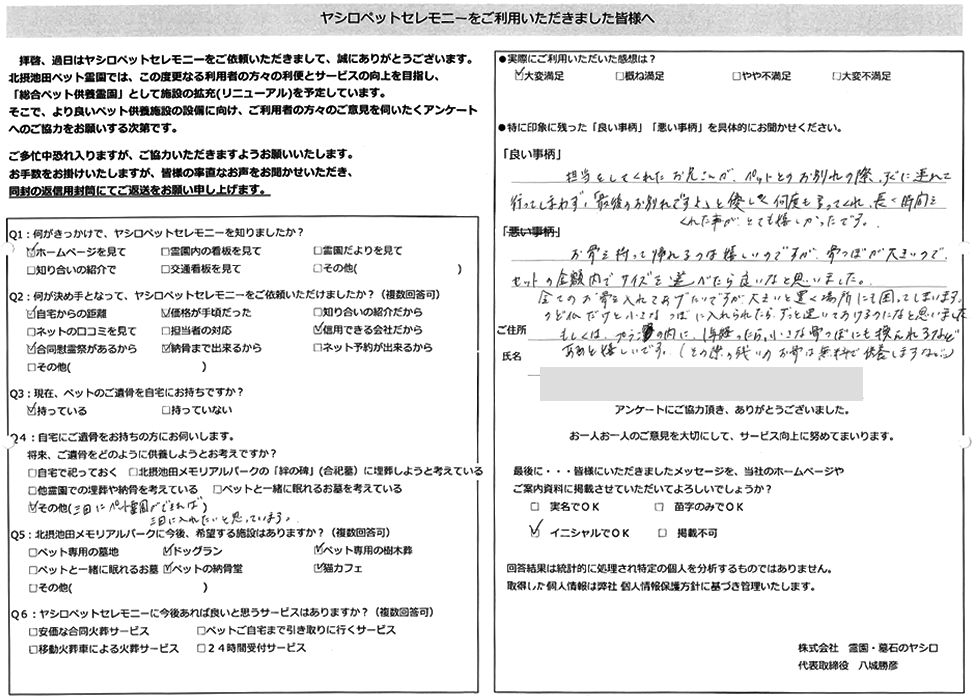 ヤシロペットセレモニーをご利用いただきました皆様へ
拝啓、過日はヤシロペットセレモニーをご依頼いただきまして、誠にありがとうございます。
北摂池田ペット霊園では、この度更なる利用者の方々の利便とサービスの向上を目指し、
「総合ペット供養霊園」として施設の拡充(リニューアル)を予定しています。
そこで、より良いペット供養施設の設備に向け、ご利用者の方々のご意見を伺いたくアンケート
へのご協力をお願いする次第です。
ご多忙中恐れ入りますが、ご協力いただきますようお願いいたします。
お手数をお掛けいたしますが、皆様の率直なお声をお聞かせいただき、
同封の返信用封筒にてご返送をお願い申し上げます。
Q1：何がきっかけで、ヤシロペットセレモニーを知りましたか？
☑ホームページを見て □霊園内の看板を見て □霊園だよりを見て
□知り合いの紹介で □交通看板を見て □その他( )
Q2：何が決め手となって、ヤシロペットセレモニーをご依頼いただけましたか？（複数回答可）
☑自宅からの距離 ☑価格が手頃だった □知り合いの紹介だから
□ネットの口コミを見て □担当者の対応 ☑信用できる会社だから
☑合同慰霊祭があるから ☑納骨まで出来るから □ネット予約が出来るから
□その他( )
Q3：現在、ペットのご遺骨を自宅にお持ちですか？
☑持っている □持っていない
Q4：自宅にご遺骨をお持ちの方にお伺いします。
将来、ご遺骨をどのように供養しようとお考えですか？
□自宅で祀っておく □北摂池田メモリアルパークの「絆の碑」(合祀墓）に埋葬しようと考えている
□他霊園での埋葬や納骨を考えている □ペットと一緒に眠れるお墓を考えている
☑その他(三日にペット霊園ができれば)
三日に入れたいと思っています。
Q5：北摂池田メモリアルパークに今後、希望する施設はありますか？（複数回答可）
□ペット専用の墓地 ☑ドッグラン ☑ペット専用の樹木葬
□ペットと一緒に眠れるお墓 ☑ペットの納骨堂 ☑猫カフェ
□その他( )
Q6：ヤシロペットセレモニーに今後あれば良いと思うサービスはありますか？（複数回答可）
□安価な合同火葬サービス □ペットご自宅まで引き取りに行くサービス
□移動火葬車による火葬サービス □２４時間受付サービス
●実際にご利用いただいた感想は？
☑大変満足 □概ね満足 □やや不満足 □大変不満足
●特に印象に残った「良い事柄」「悪い事柄」を具体的にお聞かせください。
「良い事柄」
担当をしてくれたお兄さんが、ペットとのお別れの際、すぐに連れて
行ってしまわず、「最後のお別れですよ」と優しく何度も言ってくれ、長く時間を
くれた事が、とても嬉しかったです。
「悪い事柄」
お骨を持って帰れるのは嬉しいのですが、骨つぼが大きいので、
セットの金額内でサイズを選べたら良いなと思いました。
全てのお骨を入れてあげたいですが大きいと置く場所にも困ってしまいます。
のど仏だけと小さなつぼに入れられたら、ずっと置いておけるのになと思いました
もしくは、の内に、1年経ったら、小さな骨つぼにも換えられるなど
あると嬉しいです。(その際の残りのお骨は無料で供養しますなど)
ご住所
氏名
アンケートにご協力頂き、ありがとうございました。
お一人お一人のご意見を大切にして、サービス向上に努めてまいります。
最後に・・・皆様にいただきましたメッセージを、当社のホームページや
ご案内資料に掲載させていただいてよろしいでしょうか？
□ 実名でＯＫ □ 苗字のみでＯＫ
☑ イニシャルでＯＫ □ 掲載不可
回答結果は統計的に処理され特定の個人を分析するものではありません。
取得した個人情報は弊社 個人情報保護方針に基づき管理いたします。
株式会社 霊園・墓石のヤシロ
代表取締役 八城勝彦